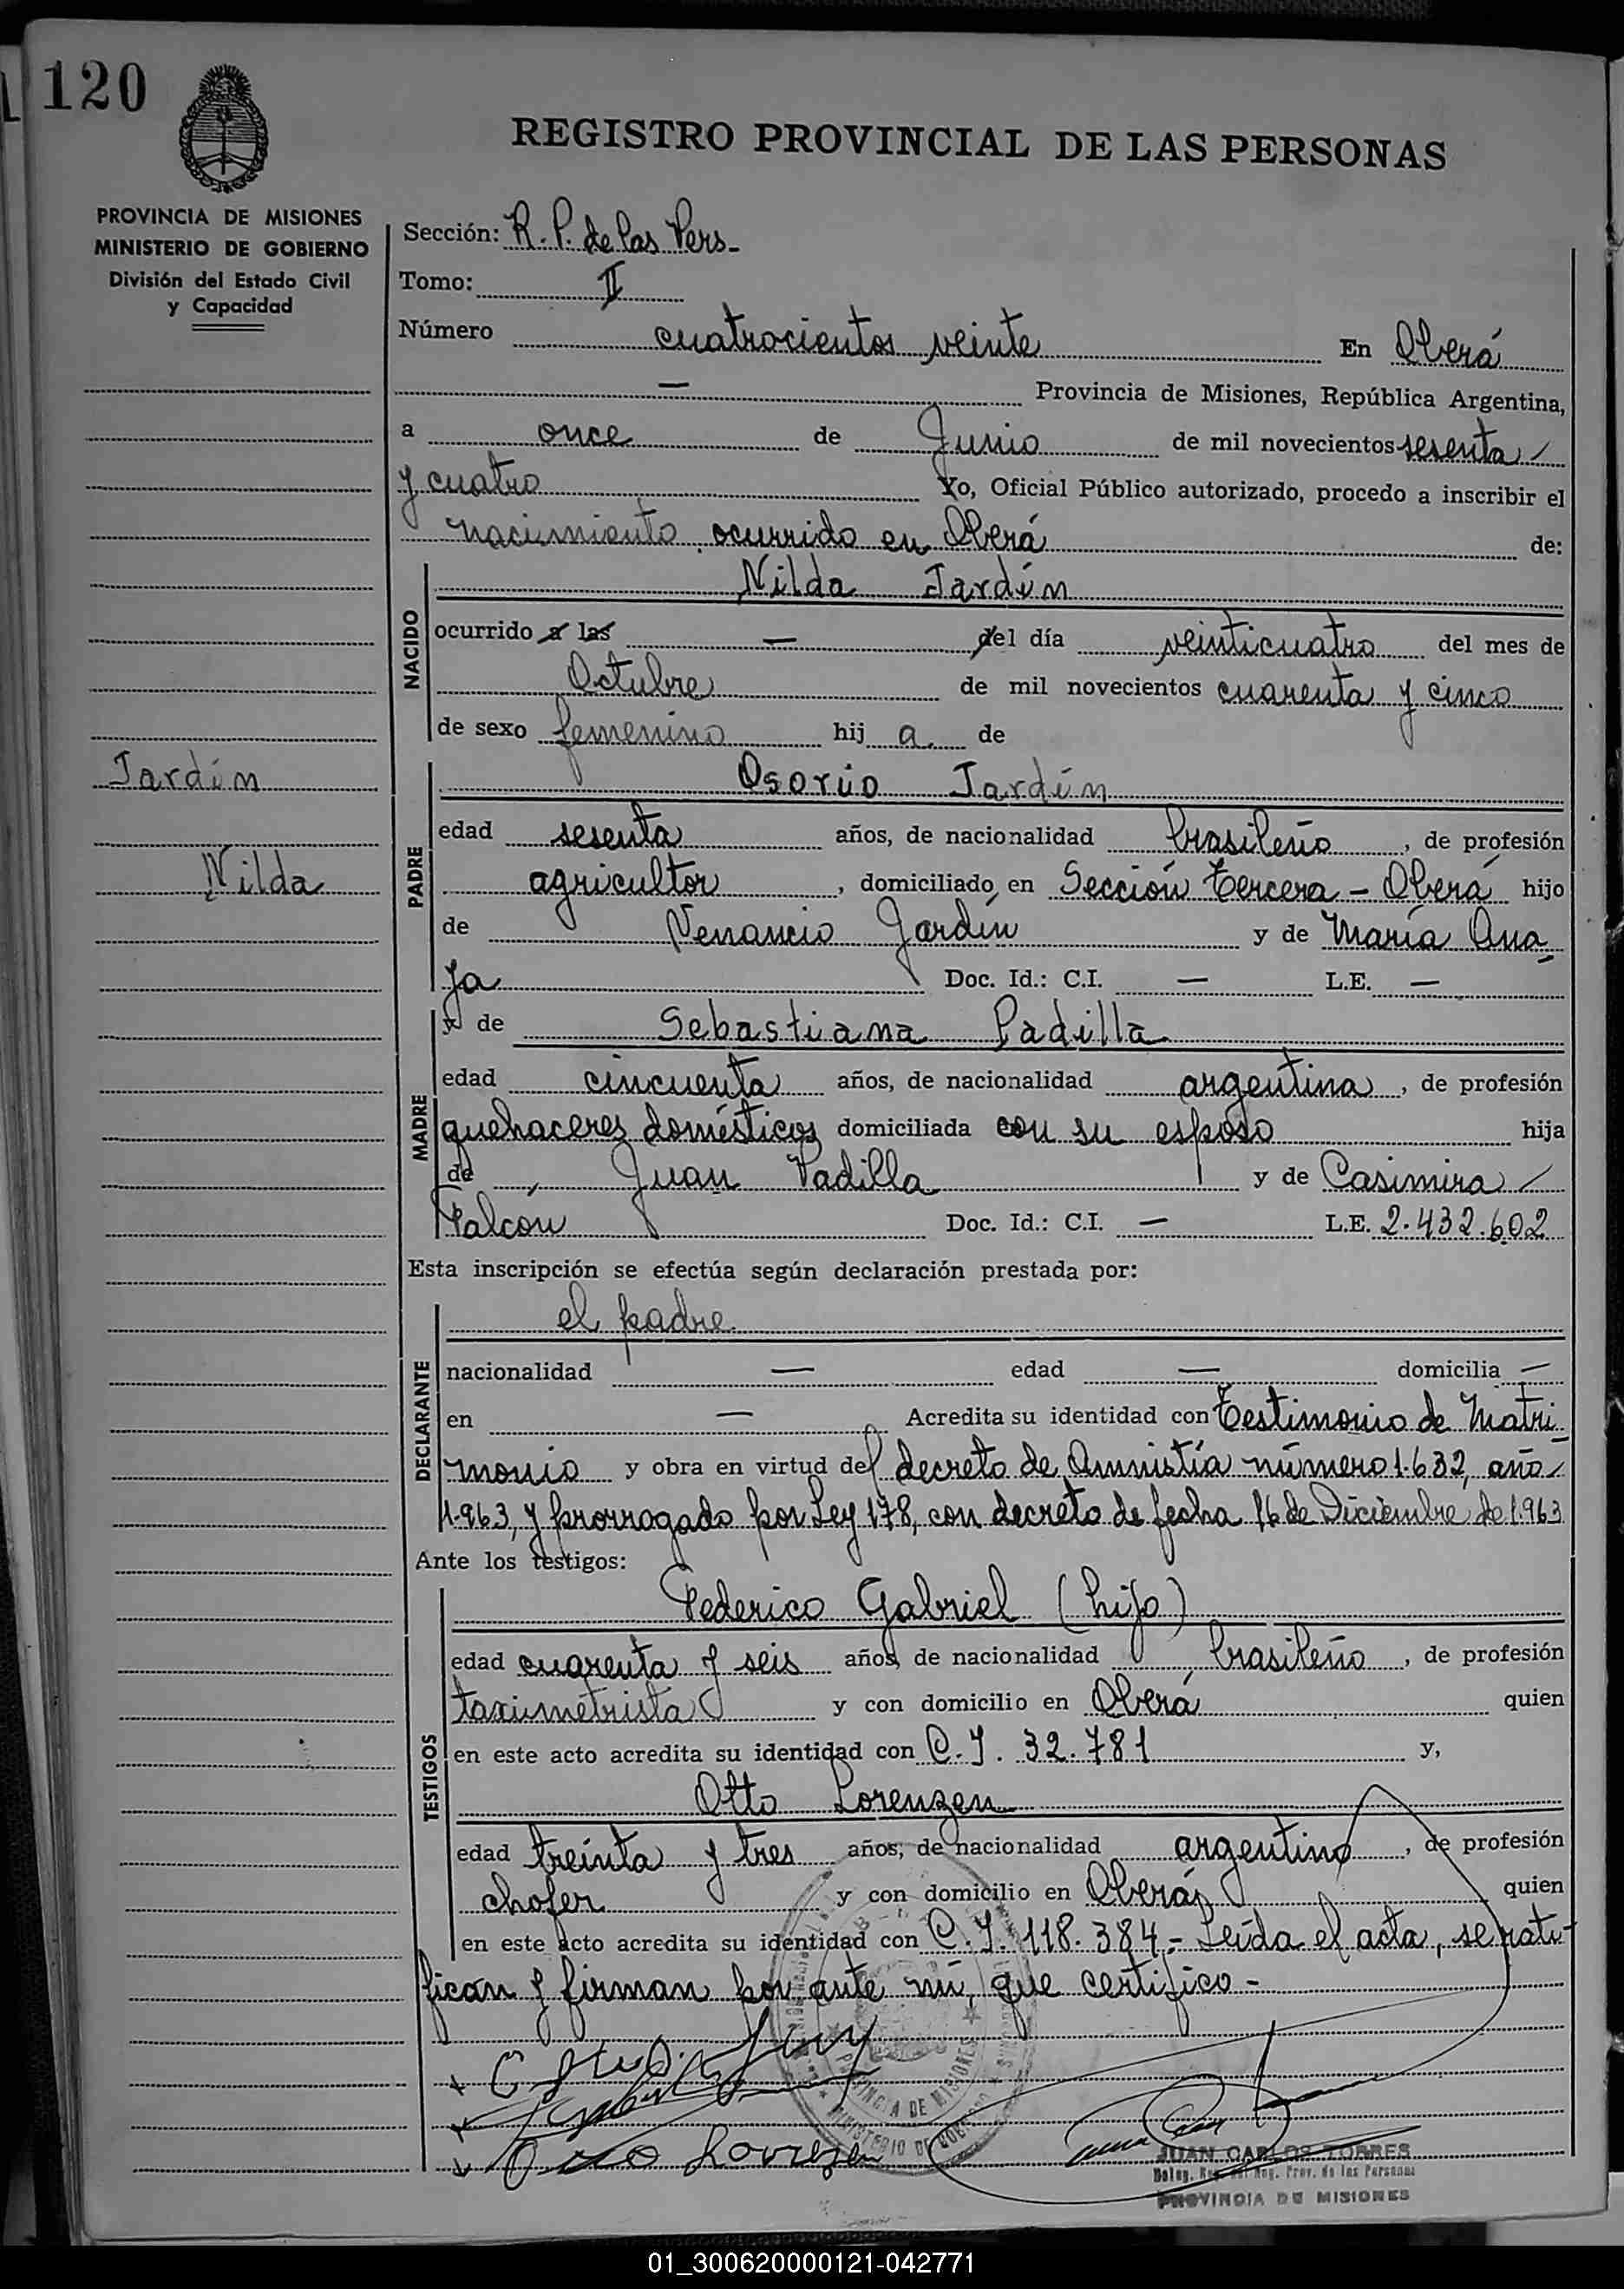 120
REGISTRO PROVINCIAL DE LAS PERSONAS
PROVINCIA DE MISIONES
MINISTERIO DE GOBIERNO
División del Estado Civil
y Capacidad
Sección: R. P. de las Pers-
Tomo: II
Número cuatrocientos veinte En Oberá
— Provincia de Misiones, República Argentina,
a once de Junio de mil novecientos sesenta /
y cuatro Yo, Oficial Público autorizado, procedo a inscribir el
nacimiento ocurrido en Oberá de:
NACIDO
Nilda Jardín
ocurrido a las — del día veinticuatro del mes de
Octubre de mil novecientos cuarenta y cinco
de sexo femenino hij a. de
Jardín
Nilda
PADRE
Osorio Jardín
edad sesenta años, de nacionalidad brasileño, de profesión
agricultor, domiciliado en Sección tercera - Oberá hijo
de Venancio Jardín y de María Ana
Ja Doc. Id.: C.I. — L.E. —
MADRE
y de Sebastiana Padilla
edad cincuenta años, de nacionalidad argentina, de profesión
quehaceres domésticos domiciliada con su esposo hija
de Juan Padilla y de Casimira /
Falcón Doc. Id.: C.I. — L.E. 2.432.602
Esta inscripción se efectúa según declaración prestada por:
DECLARANTE
el padre
nacionalidad — edad — domicilia —
en — Acredita su identidad con Testimonio de Matri-
monio y obra en virtud del decreto de Amnistía número 1.632, año /
1.963, y prorrogado por Ley 178, con decreto de fecha 16 de Diciembre de 1.963
Ante los testigos:
TESTIGOS
Federico Gabriel (hijo)
edad cuarenta y seis años, de nacionalidad brasileño, de profesión
taximetrista y con domicilio en Oberá quien
en este acto acredita su identidad con C.I. 32.781 y,
Otto Lorenzen
edad treinta y tres años, de nacionalidad argentino, de profesión
chofer y con domicilio en Oberá quien
en este acto acredita su identidad con C.I. 118.384.- Leída el acta, se rati-
fican y firman por ante mí, que certifico-
Otto Lorenzen
PROVINCIA DE MISIONES
MINISTERIO DE GOBIERNO
JUAN CARLOS TORRES
Prov. de las Personas
PROVINCIA DE MISIONES
01_300620000121-042771